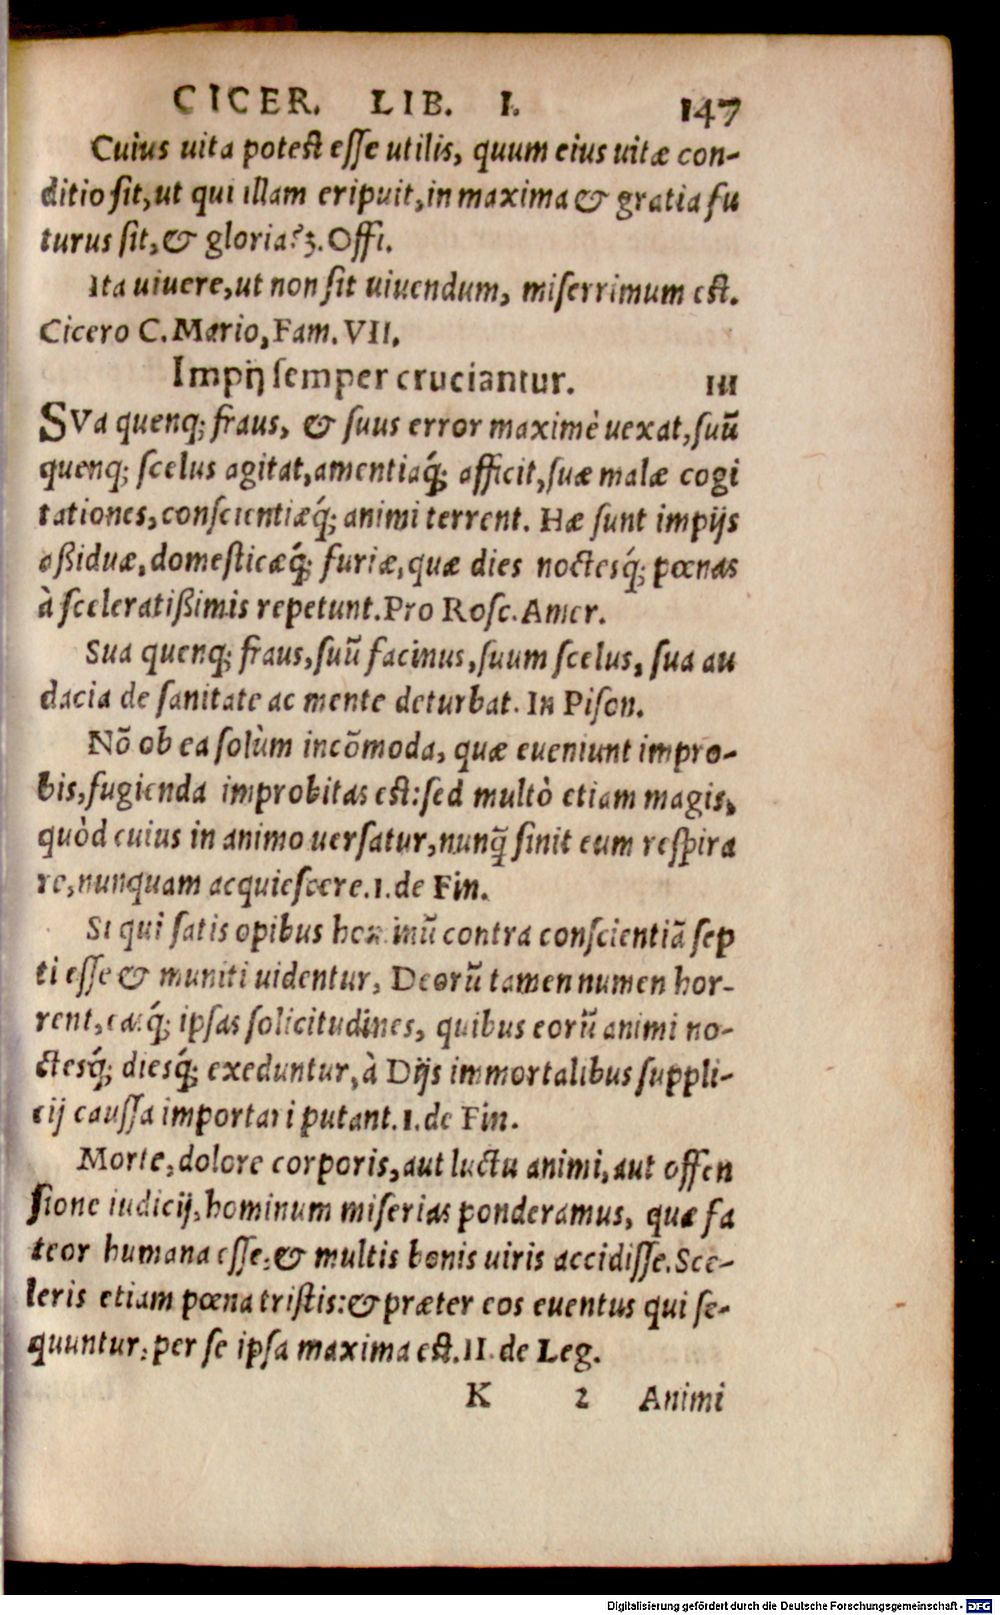 CICER. LIB. I. 147
Cuius uita potest esse utilis, quum eius uitæ con-
ditio sit, ut qui illam eripuit, in maxima & gratia fu
turus sit, & gloria? 3. Offi.
Ita uiuere, ut non sit uiuendum, miserrimum est.
Cicero C. Mario, Fam. VII.
Impij semper cruciantur. III
SVa quenq; fraus, & suus error maximè uexat, suũ
quenq; scelus agitat, amentiaq́; afficit, suæ malæ cogi
tationes, conscientiæq́; animi terrent. Hæ sunt impijs
aßiduæ, domesticæq́; furiæ, quæ dies noctesq́; pœnas
à sceleratißimis repetunt. Pro Rosc. Amer.
Sua quenq; fraus, suũ facinus, suum scelus, sua au
dacia de sanitate ac mente deturbat. In Pison.
Nõ ob ea solùm incõmoda, quæ eueniunt impro-
bis, fugienda improbitas est: sed multò etiam magis,
quòd cuius in animo uersatur, nunq̃ sinit eum respira
re, nunquam acquiescere. 1. de Fin.
Si qui satis opibus hominũ contra conscientiã sep
ti esse & muniti uidentur, Deorũ tamen numen hor-
rent, easq́; ipsas solicitudines, quibus eorũ animi no-
ctesq́; diesq́; exeduntur, à Dijs immortalibus suppli-
cij caussa importari putant. 1. de Fin.
Morte, dolore corporis, aut luctu animi, aut offen
sione iudicij, hominum miserias ponderamus, quæ fa
teor humana esse, & multis bonis uiris accidisse. Sce-
leris etiam pœna tristis: & præter eos euentus qui se-
quuntur, per se ipsa maxima est. II. de Leg.
K 2 Animi
Digitalisierung gefördert durch die Deutsche Forschungsgemeinschaft - DFG